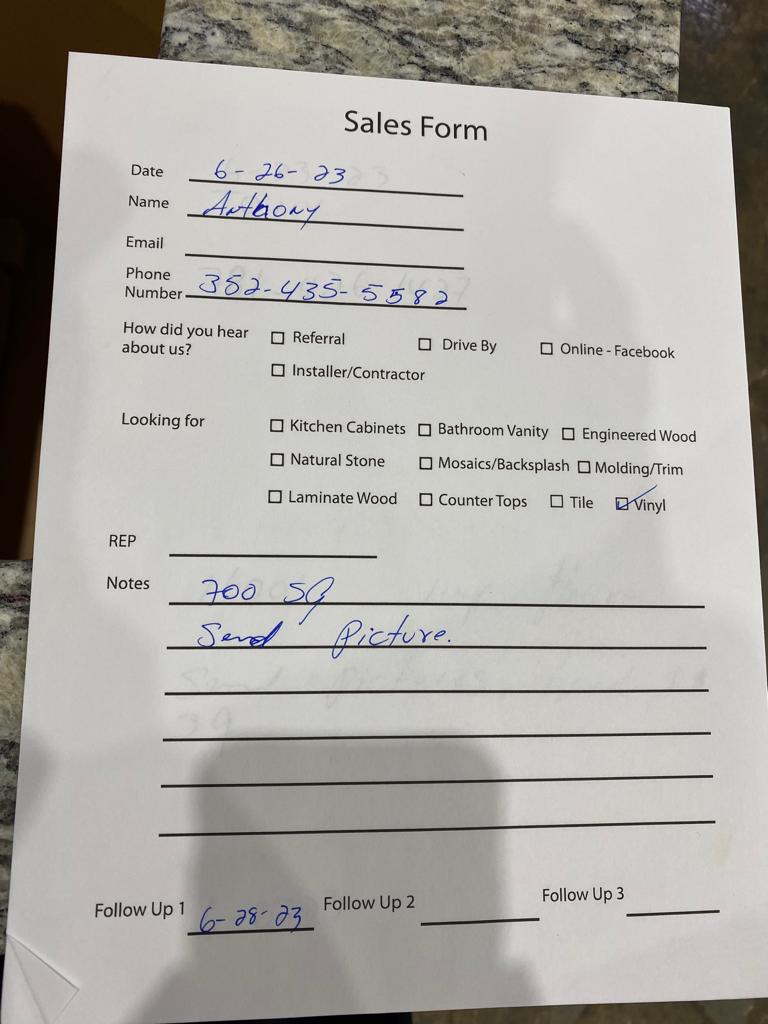 Sales Form
Date 6-26-23
Name Anthony
Email
Phone Number 352-435-5582
How did you hear about us?
☐ Referral ☐ Drive By ☐ Online - Facebook
☐ Installer/Contractor
Looking for
☐ Kitchen Cabinets ☐ Bathroom Vanity ☐ Engineered Wood
☐ Natural Stone ☐ Mosaics/Backsplash ☐ Molding/Trim
☐ Laminate Wood ☐ Counter Tops ☐ Tile ☑ Vinyl
REP
Notes 700 SQ
Send Picture.
Follow Up 1 6-28-23 Follow Up 2 Follow Up 3